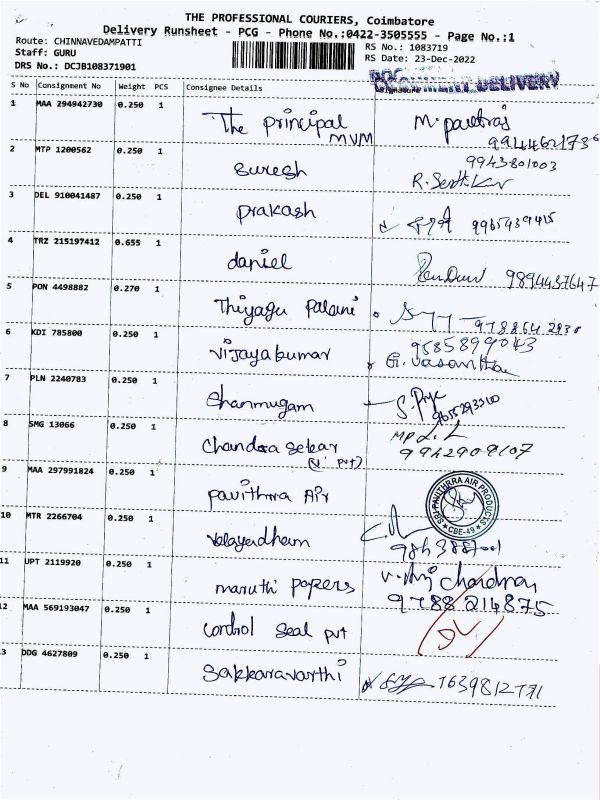 THE PROFESSIONAL COURIERS, Coimbatore
Delivery Runsheet - PCG - Phone No.:0422-3505555 - Page No.:1
Route: CHINNAVEDAMPATTI
RS No.: 1083719
Staff: GURU
RS Date: 23-Dec-2022
DRS No.: DCJB108371901
DOCUMENT DELIVERY
S No Consignment No Weight PCS Consignee Details Signature
1 MAA 294942730 0.250 1 The principal MVM
9944621736
2 MTP 1200562 0.250 1 Suresh
9943801003
3 DEL 910041487 0.250 1 prakash
4 TRZ 215197412 0.655 1 daniel
9894437647
5 PON 4498882 0.270 1 Thiyagu Palani
6 KDI 785800 0.250 1 Vijayakumar
9585899043
7 PLN 2240783 0.250 1 Shanmugam
8 SMG 13066 0.250 1 Chandra Sekar
9942909107
9 MAA 297991824 0.250 1 pavithrra Air
SRI PAVITHRRA AIR PRODUCTS
CBE-49
10 MTR 2266704 0.250 1 Velayudham
11 UPT 2119920 0.250 1 maruthi papers
9788214875
12 MAA 569193047 0.250 1 control seal pvt
3 DDG 4627809 0.250 1 Sakkaravarthi